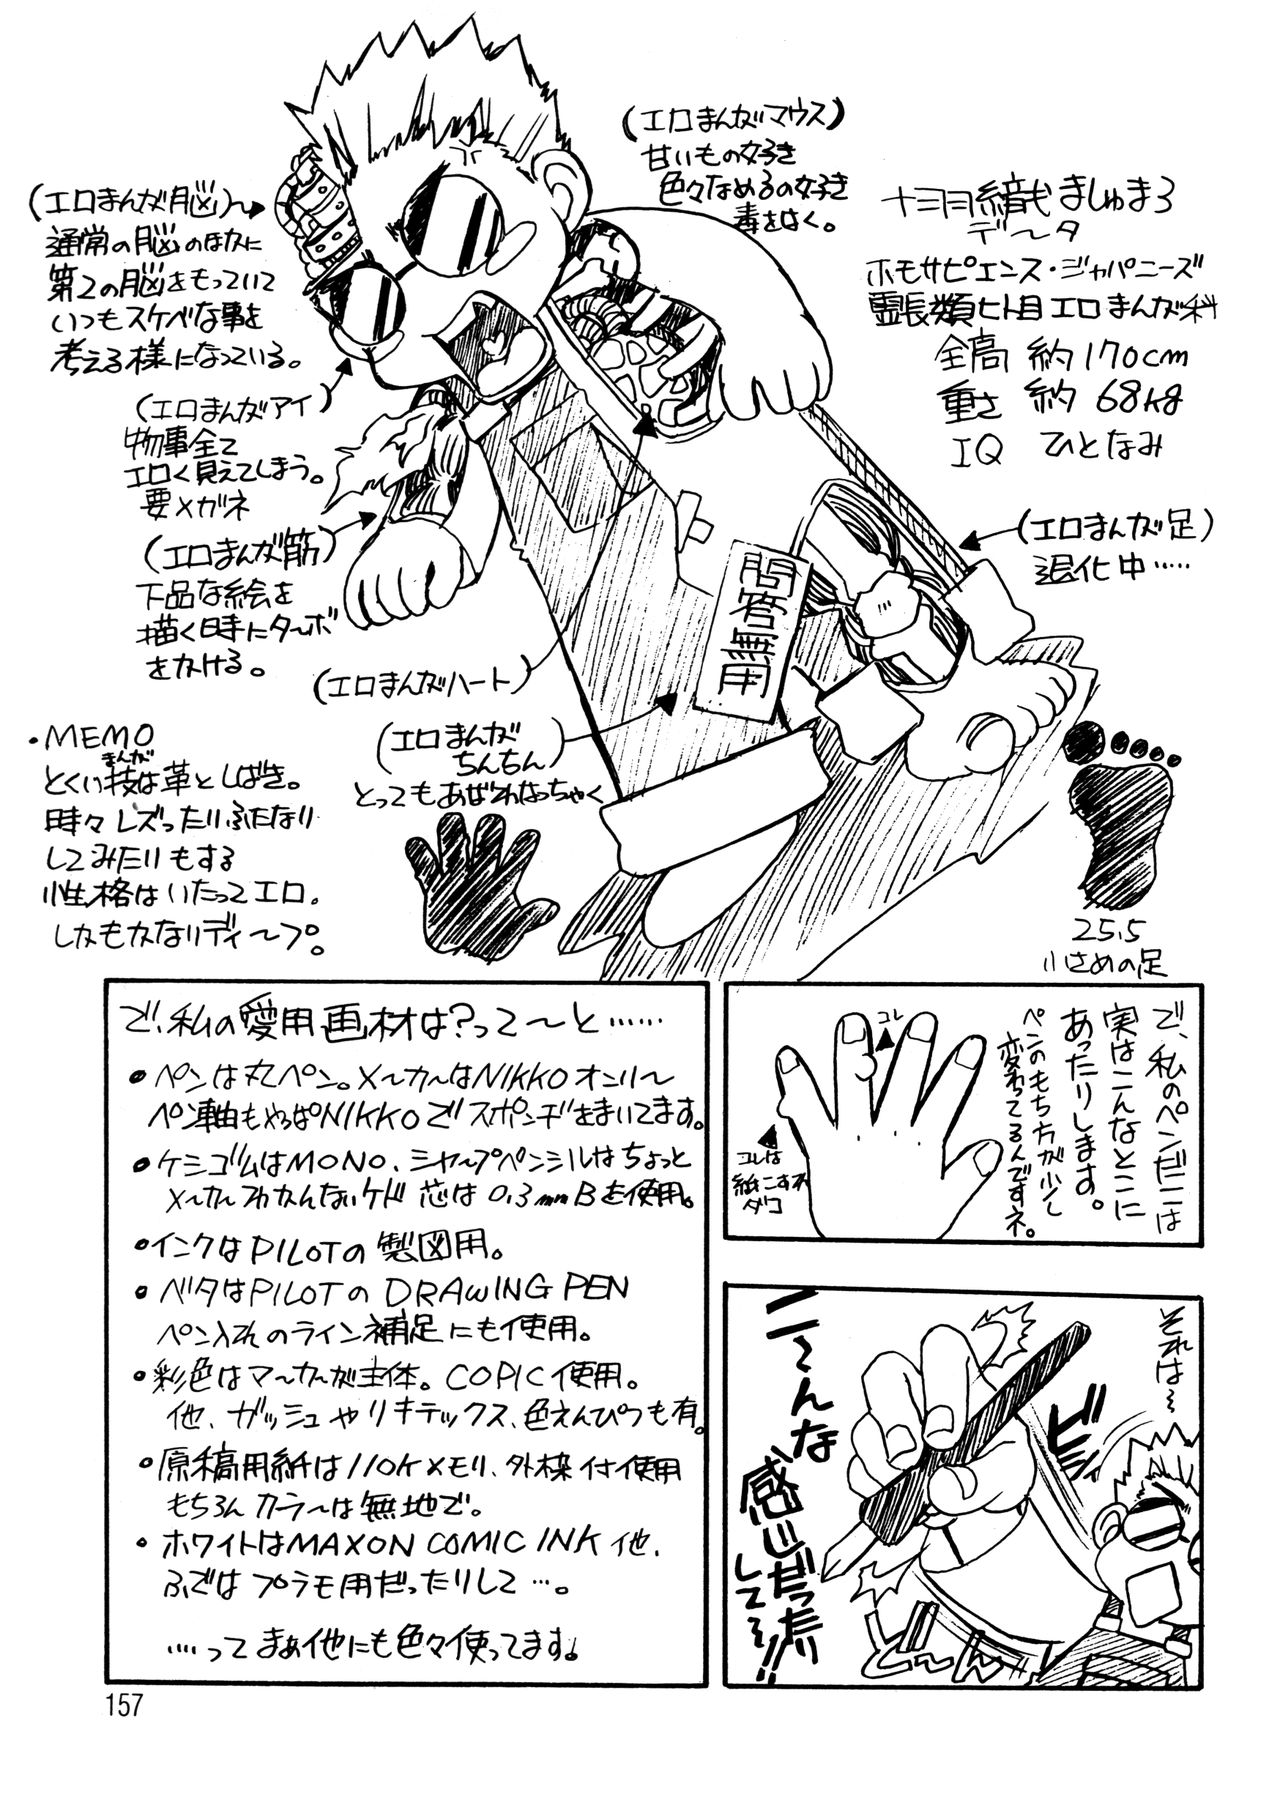 (エロまんがマウス)
甘いもの好き
色々なめるの好き
毒をはく。
ましゅまろ
デ〜タ
ホモサピエンス・ジャパニーズ
霊長類ヒト目エロまんが科
全高 約170cm
重さ 約68kg
IQ ひとなみ
(エロまんが脳)〜
通常の脳のほかに
第2の脳をもっていて
いつもスケベな事を
考える様になっている。
(エロまんがアイ)
物事全て
エロく見えてしまう。
要メガネ
(エロまんが筋)
下品な絵を
描く時にターボ
をかける。
(エロまんが足)
退化中……
問答無用
(エロまんがハート)
(エロまんが
ちんちん)
とってもあばれはっちゃく
・MEMO
まんが
とくい技は革としばき。
時々レズったりふたなり
してみたりもする
性格はいたってエロ。
しかもかなりディ〜プ。
25.5
小さめの足
で、私の愛用画材は?って〜と……
●ペンは丸ペン。メ〜カ〜はNIKKOオンリ〜
ペン軸もやっぱNIKKOでスポンヂをまいてます。
●ケシゴムはMONO、シャ〜プペンシルはちょっと
メ〜カ〜わかんないケド 芯は0.3mmBを使用。
●インクはPILOTの製図用。
●ベタはPILOTのDRAWING PEN
ペン入れのライン補足にも使用。
●彩色はマ〜カ〜が主体。COPIC使用。
他、ガッシュやリキテックス、色えんぴつも有。
●原稿用紙は110Kメモリ、外枠付使用
もちろんカラ〜は無地で。
●ホワイトはMAXON COMIC INK他、
ふではプラモ用だったりして…。
……ってまぁ他にも色々使ってます。
で、私のペンだこは
実はこんなとこに
あったりします。
ペンのもち方が少し
変わってるんですネ。
コレ
コレは
紙こすれ
ダコ
それは〜
ビシィ
こ〜んな
感じだったり
してる!!
ど〜ん
157